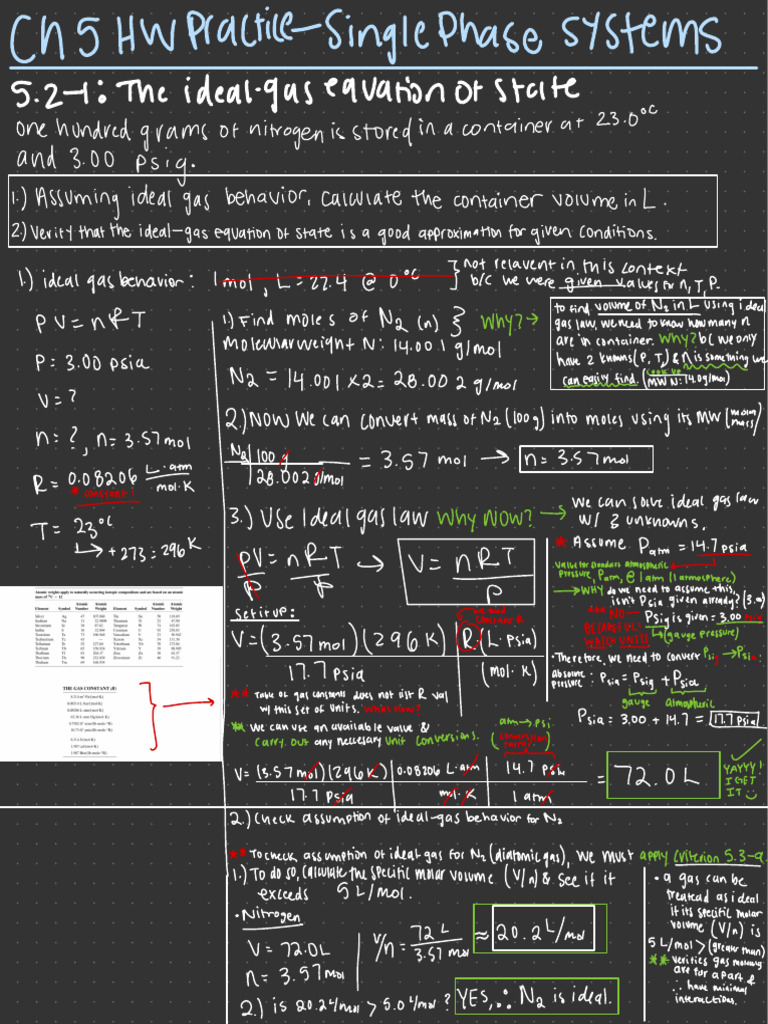 Ch 5 HW Practice - Single Phase Systems
5.2-1: The ideal-gas equation of state
One hundred grams of nitrogen is stored in a container at 23.0°C
and 3.00 psig.
1.) Assuming ideal gas behavior, calculate the container volume in L.
2.) Verify that the ideal-gas equation of state is a good approximation for given conditions.
1.) ideal gas behavior:
1 mol, L = 22.4 @ 0°C
} not relavent in this context
b/c we were given values for n, T, P.
PV = nRT
P: 3.00 psia
V = ?
n = ?, n = 3.57 mol
R = 0.08206 L·atm / mol·K
* constant!
T = 23°C
→ +273 = 296 K
1.) Find moles of N2 (n) } Why? →
Molecular weight N: 14.001 g/mol
N2 = 14.001 x 2 = 28.002 g/mol
to find volume of N2 in L using ideal
gas law, we need to know how many n
are in container. Why? b/c we only
have 2 knowns (P, T,) & n is something we
can easily find. (MW N: 14.0 g/mol)
2.) Now we can convert mass of N2 (100 g) into moles using its MW (molar mass)
N2 | 100 g
| 28.002 g/mol
= 3.57 mol → n = 3.57 mol
3.) Use Ideal gas law Why Now? →
we can solve ideal gas law
w/ 3 unknowns.
PV = nRT → V = nRT
P P P
set it up:
we need constant R
V = (3.57 mol)(296 K) | R | (L·Psia)
17.7 Psia | (mol·K)
** Table of gas constants does not list R val
w/ this set of units. What now?
** We can use an available value &
carry out any necessary unit conversions.
atm → psi
(conversion factor)
V = (3.57 mol)(296 K) | 0.08206 L·atm | 14.7 Psia
17.7 Psia | mol·K | 1 atm
= 72.0 L
YAYYY!
I GET
IT
* Assume Patm = 14.7 psia
Value for standard atmospheric
pressure, Patm, @ 1 atm (1 atmosphere)
→ WHY do we need to assume this,
isn't Psia given already? (3.00)
NO—
BECAUSE
UNITS
Psig is given = 3.00 psig
→ (gauge pressure)
• Therefore, we need to convert Psig → Psia:
absolute pressure: Psia = Psig + Psia
gauge atmospheric
Psia = 3.00 + 14.7 = 17.7 Psia
Atomic weights apply to naturally occurring isotopic compositions and are based on an atomic
mass of 12C = 12
Element Symbol Atomic Number Atomic Weight Element Symbol Atomic Number Atomic Weight
THE GAS CONSTANT (R)
2.) Check assumption of ideal-gas behavior for N2
** To check assumption of ideal gas for N2 (diatomic gas), we must apply Criterion 5.3-a.
1.) To do so, calculate the specific molar volume (V/n) & see if it
exceeds 5 L/mol.
• Nitrogen
V = 72.0 L
n = 3.57 mol
V/n = 72 L / 3.57 mol ≈ 20.2 L/mol
2.) is 20.2 L/mol > 5.0 L/mol? YES, ∴ N2 is ideal.
• a gas can be
treated as ideal
if its specific molar
volume (V/n) is
5 L/mol > (greater than)
** Verifies gas
are far apart &
∴ have minimal
interactions.